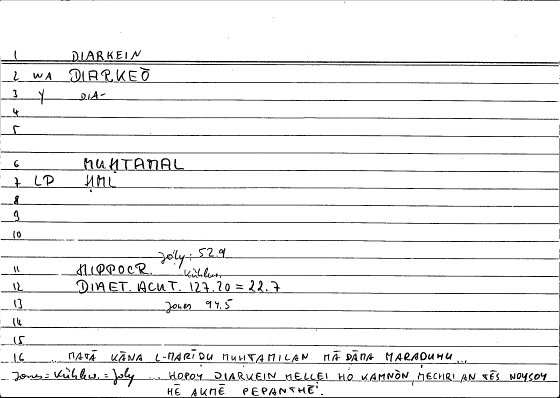 1 DIARKEIN
2 WA DIARKEŌ
3 Y DIA-
4
5
6 MUḤTAMAL
7 LP ḤML
8
9
10
Joly: 52.9
11 HIPPOCR. Kühlew.
12 DIAET. ACUT. 127.20 = 22.7
13 Jones 94.5
14
15
16 ... MATĀ KĀNA L-MARĪḌU MUḤTAMILAN MĀ DĀMA MARAḌUHU ...
Jones = Kühlew. = Joly ... HOPOY DIARKEIN MELLEI HO KAMNŌN, MECHRI AN TĒS NOYSOY
HĒ AKMĒ PEPANTHĒ.